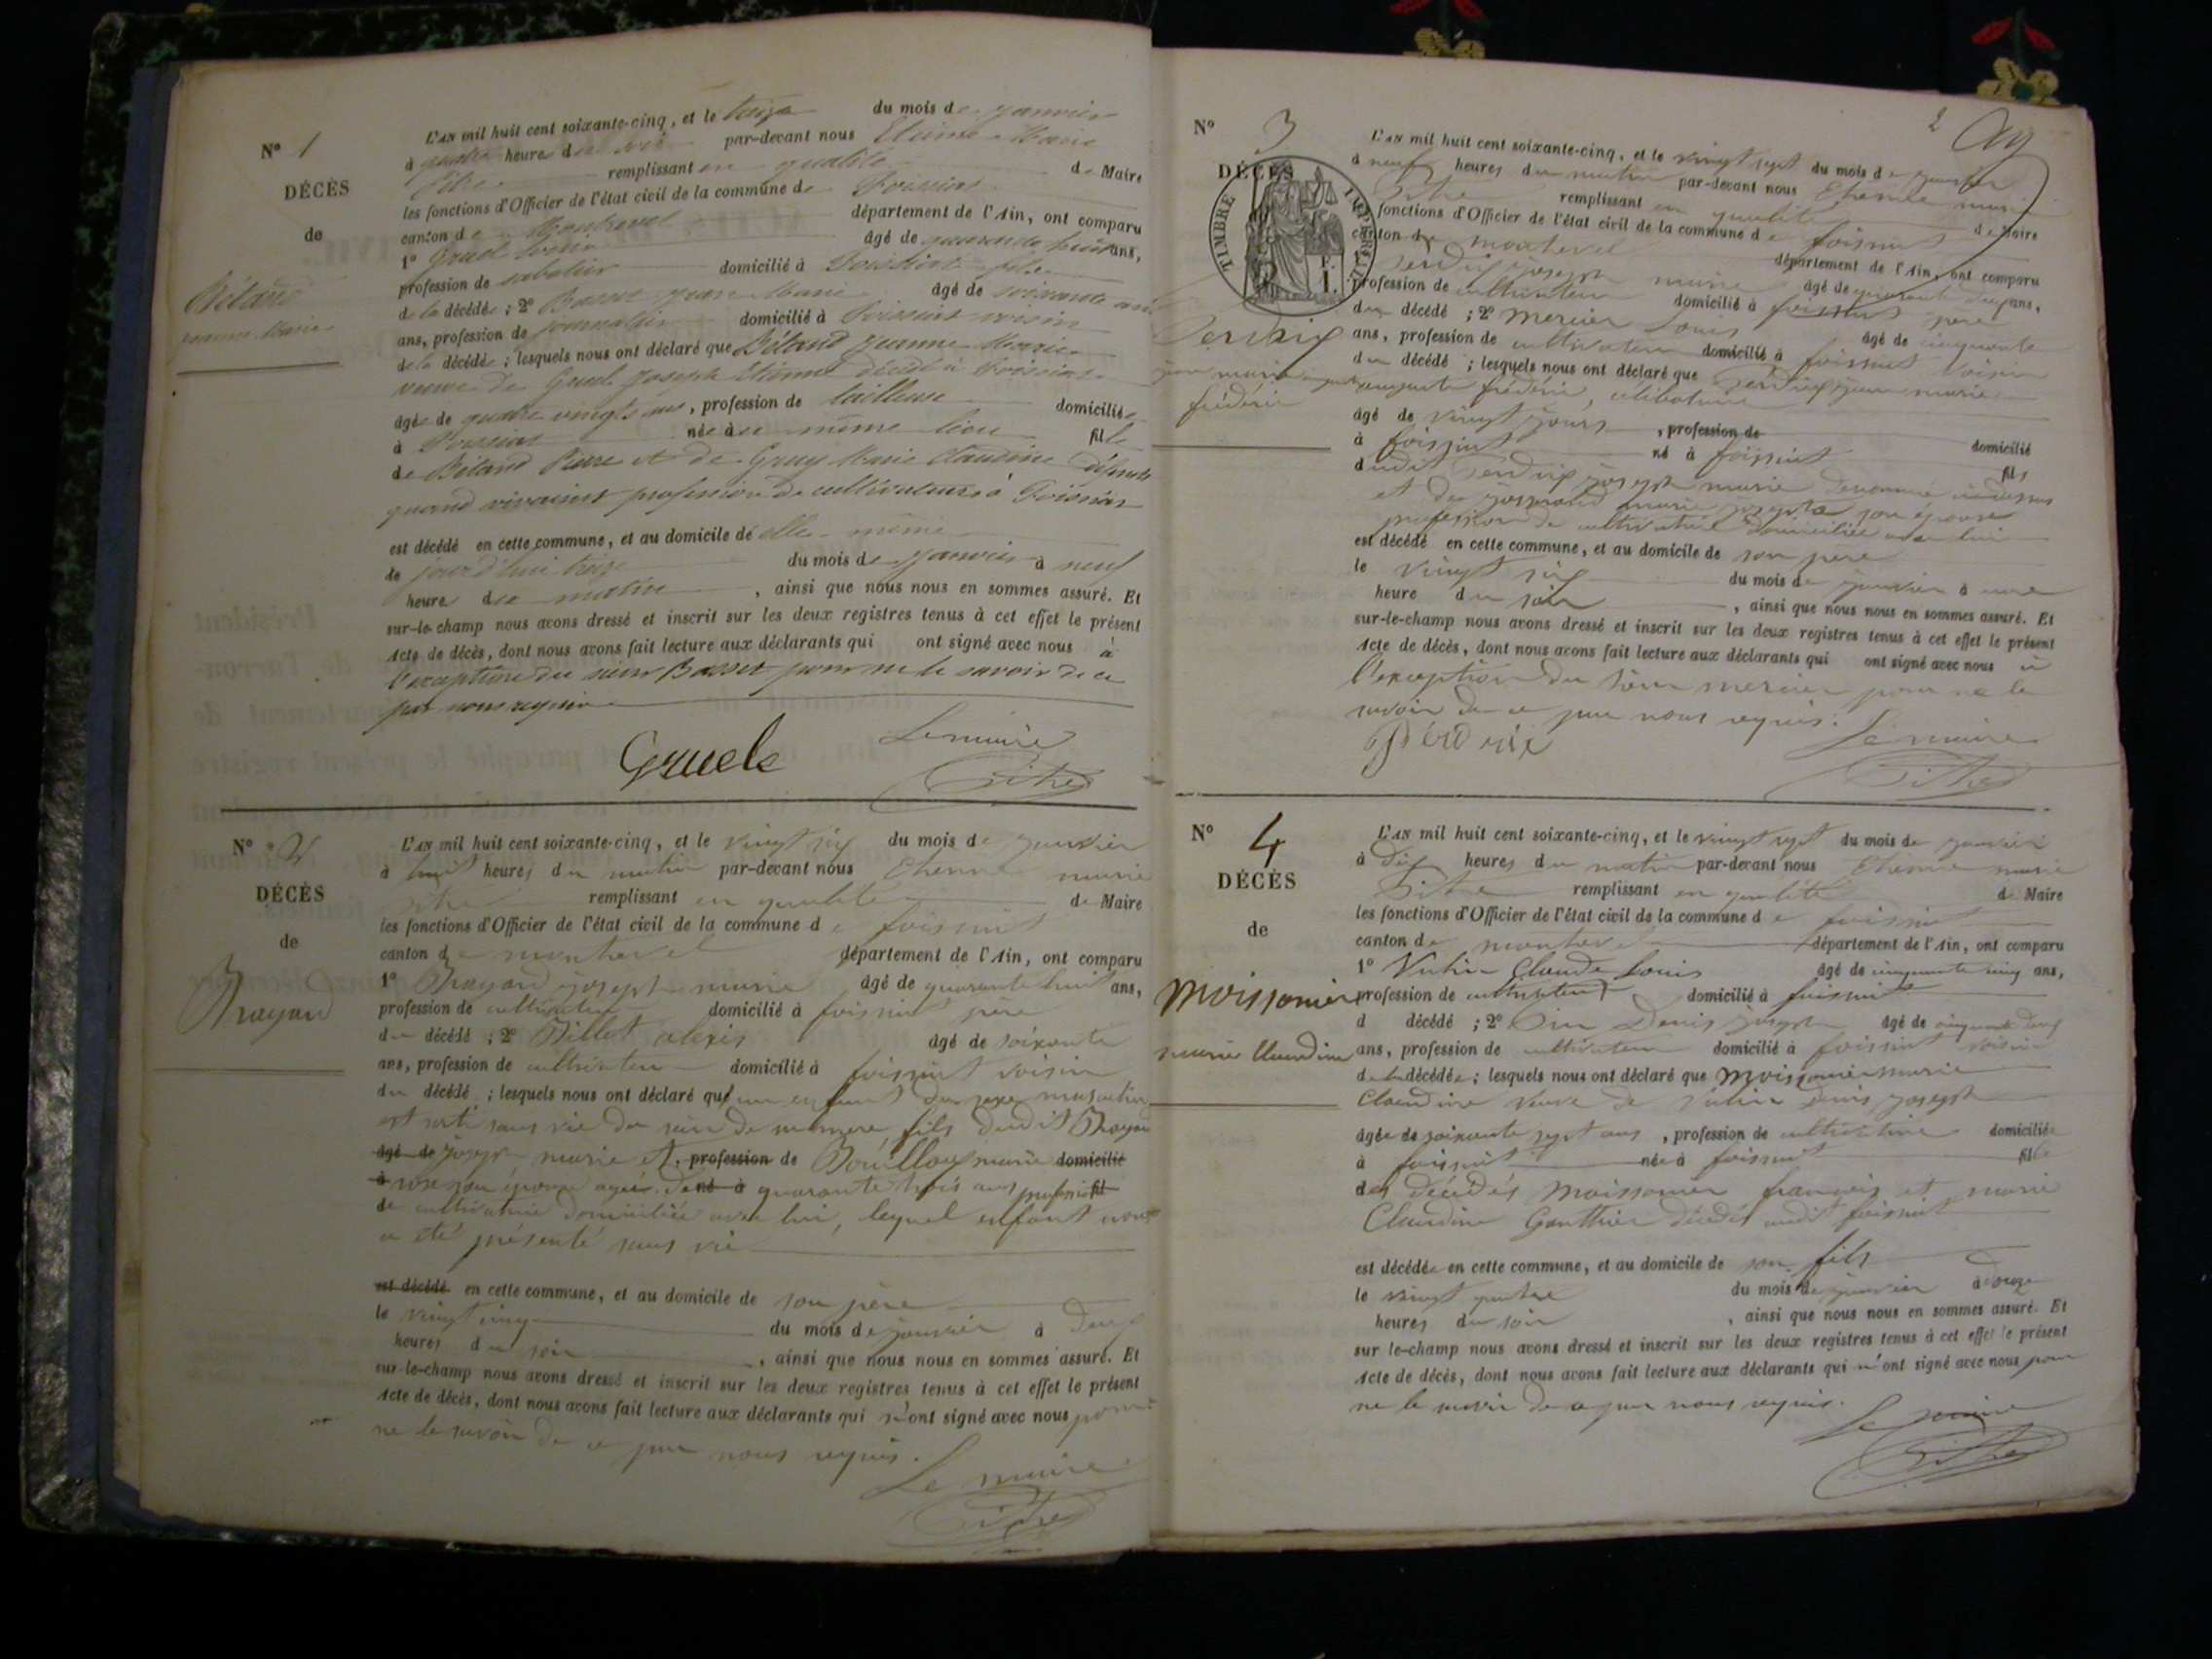 N° 1
DÉCÈS
de
Béland
jeanne Marie
L'AN mil huit cent soixante-cinq, et le treize du mois de janvier
à quatre heures du soir par-devant nous Etienne Marie
Pitre remplissant en qualité de Maire
les fonctions d'Officier de l'état civil de la commune de Foissiat
canton de Montrevel département de l'Ain, ont comparu
1° Gruel âgé de quarante huit ans,
profession de sabotier domicilié à Foissiat fils
de la décédée ; 2° Basset jean Marie âgé de soixante
ans, profession de journalier domicilié à Foissiat voisin
de la décédée ; lesquels nous ont déclaré que Béland Jeanne Marie
veuve de Gruel Joseph Etienne décédé à Foissiat
âgée de quatre vingts ans, profession de tailleuse domiciliée
à Foissiat née à ce même lieu fille
de Béland Pierre et de Gruy Marie Claudine défunts
quand vivaient profession de cultivateurs à Foissiat
est décédé en cette commune, et au domicile de elle-même
le jourd'hui treize du mois de janvier à neuf
heures du matin, ainsi que nous nous en sommes assuré. Et
sur-le-champ nous avons dressé et inscrit sur les deux registres tenus à cet effet le présent
acte de décès, dont nous avons fait lecture aux déclarants qui ont signé avec nous à
l'exception du sieur Basset pour ne le savoir de ce
par nous requis
Gruel Le maire
Pitre
N° 2
DÉCÈS
de
Brayard
L'AN mil huit cent soixante-cinq, et le vingt six du mois de janvier
à huit heures du matin par-devant nous Etienne marie
pitre remplissant en qualité de Maire
les fonctions d'Officier de l'état civil de la commune de foissiat
canton de montrevel département de l'Ain, ont comparu
1° Brayard joseph marie âgé de quarante huit ans,
profession de cultivateur domicilié à foissiat père
du décédé ; 2° Billet alexis âgé de soixante
ans, profession de cultivateur domicilié à foissiat voisin
du décédé ; lesquels nous ont déclaré qu'un enfant du sexe masculin
est sorti sans vie du sein de sa mère, fils dudit Brayard
âgé de joseph marie et, profession de Bouilloux marie domicilié
à rose son épouse agée de né à quarante trois ans profession fil
de cultivatrice domiciliée avec lui, lequel enfant nous
a été présenté sans vie
est décédé en cette commune, et au domicile de son père
le vingt cinq du mois de janvier à deux
heures du soir, ainsi que nous nous en sommes assuré. Et
sur-le-champ nous avons dressé et inscrit sur les deux registres tenus à cet effet le présent
acte de décès, dont nous avons fait lecture aux déclarants qui n'ont signé avec nous pour
ne le savoir de ce par nous requis.
Le maire
Pitre
2
N° 3
DÉCÈS
TIMBRE IMPÉRIAL
frédéric
L'AN mil huit cent soixante-cinq, et le vingt sept du mois de janvier
à neuf heures du matin par-devant nous Etienne marie
Pitre remplissant en qualité de Maire
fonctions d'Officier de l'état civil de la commune de foissiat
canton de montrevel département de l'Ain, ont comparu
Perdrix joseph marie âgé de quarante ans,
profession de cultivateur domicilié à foissiat père
du décédé ; 2° mercier Louis âgé de cinquante
ans, profession de cultivateur domicilié à foissiat voisin
du décédé ; lesquels nous ont déclaré que Perdrix jean marie
auguste frédéric, célibataire
âgé de vingt jours, profession de domicilié
à foissiat né à foissiat fils
dudit Perdrix joseph marie dénommé ci-dessus
et de marie josephte son épouse
profession de cultivatrice domiciliée avec lui
est décédé en cette commune, et au domicile de son père
le vingt six du mois de janvier à une
heure du soir, ainsi que nous nous en sommes assuré. Et
sur-le-champ nous avons dressé et inscrit sur les deux registres tenus à cet effet le présent
acte de décès, dont nous avons fait lecture aux déclarants qui ont signé avec nous à
l'exception du sieur mercier pour ne le
savoir de ce par nous requis.
Perdrix Le maire
Pitre
N° 4
DÉCÈS
de
Moissonier
marie Claudine
L'AN mil huit cent soixante-cinq, et le vingt sept du mois de janvier
à dix heures du matin par-devant nous Etienne marie
Pitre remplissant en qualité de Maire
les fonctions d'Officier de l'état civil de la commune de foissiat
canton de montrevel département de l'Ain, ont comparu
1° Vulin Claude Louis âgé de cinquante cinq ans,
profession de cultivateur domicilié à foissiat
d décédé ; 2° Denis joseph âgé de cinquante deux
ans, profession de cultivateur domicilié à foissiat voisin
de la décédée ; lesquels nous ont déclaré que Moissonier marie
Claudine veuve de Vulin Denis joseph
âgée de soixante sept ans, profession de cultivatrice domiciliée
à foissiat née à foissiat fille
des décédés Moissonier françois et marie
Claudine Gauthier décédés audit foissiat
est décédée en cette commune, et au domicile de son fils
le vingt quatre du mois de janvier à onze
heures du soir, ainsi que nous nous en sommes assuré. Et
sur le-champ nous avons dressé et inscrit sur les deux registres tenus à cet effet le présent
acte de décès, dont nous avons fait lecture aux déclarants qui n'ont signé avec nous pour
ne le savoir de ce par nous requis.
Le maire
Pitre